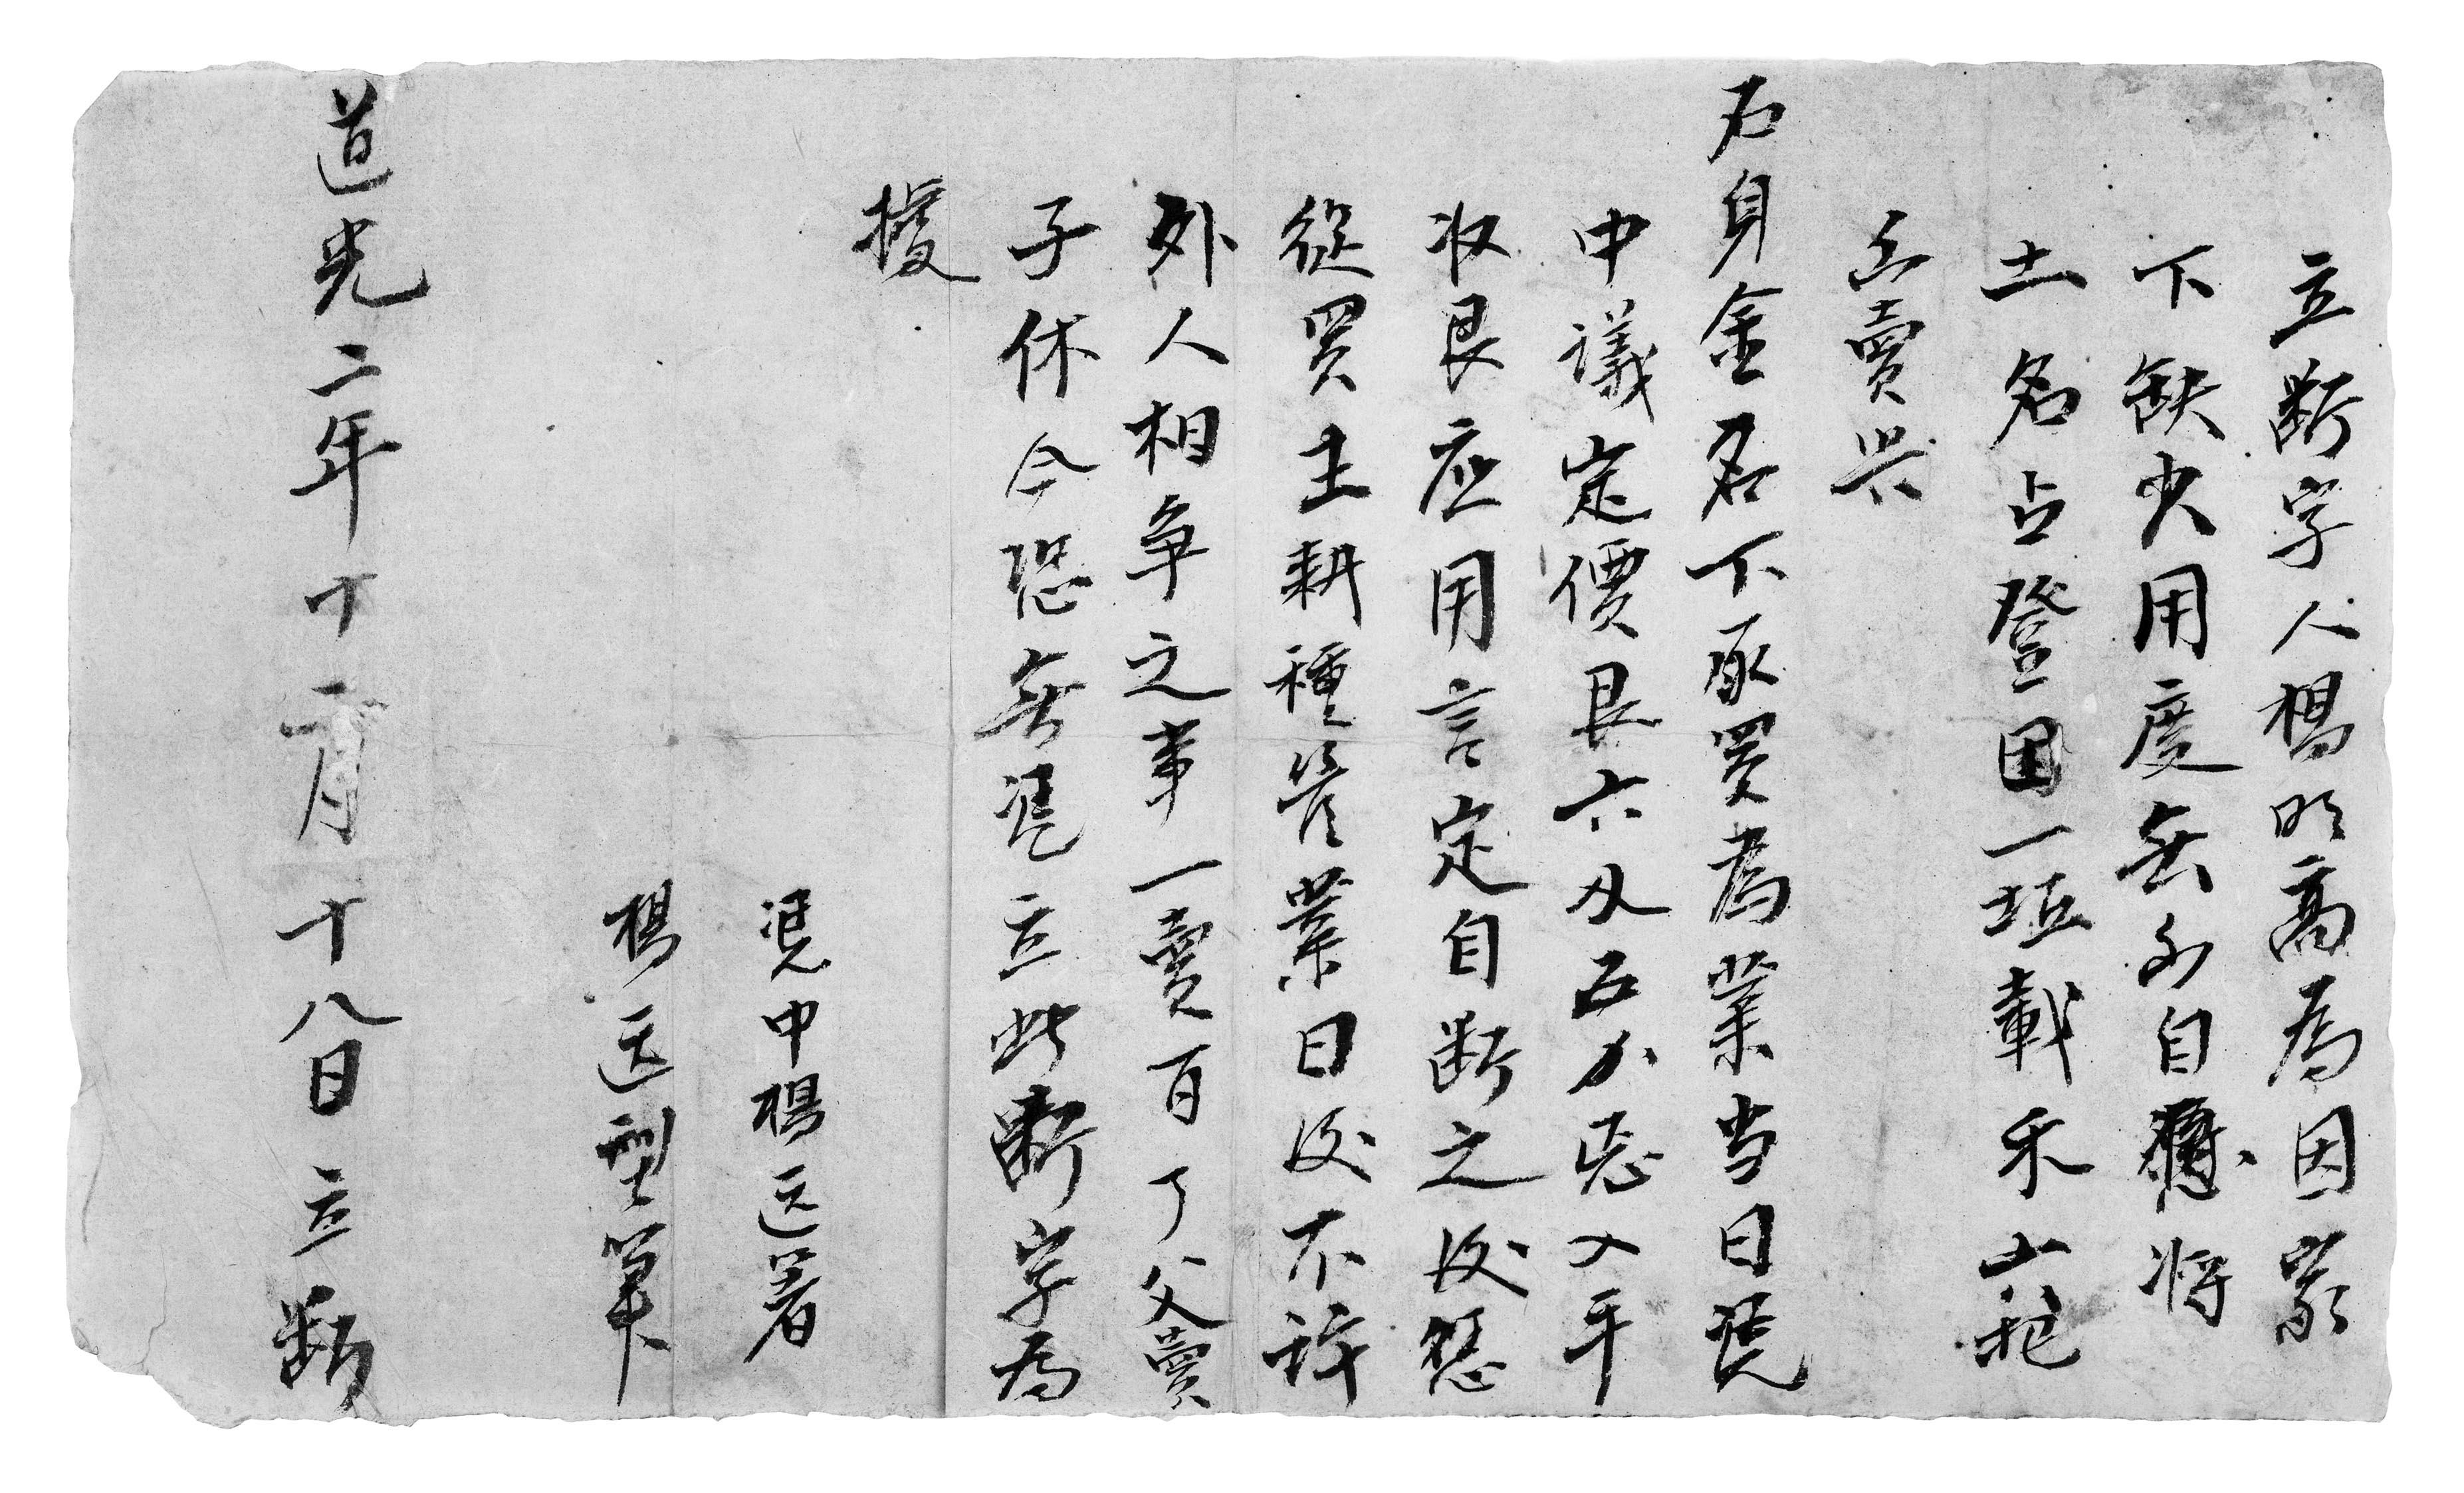 立断字人楊明高為因家
下缺少用度無処自願将
土名占登田一坵載禾六秤
出賣與
石身金名下承買為業当日凴
中議定價艮六刄五分忽入手
收艮应用言定自断之後恁
從買主耕種管業日後不許
外人相争之事一賣百了父賣
子休今恐無凴立此断字為
㨿
凴中楊送著
楊送型筆
道光二年十二月十八日立断